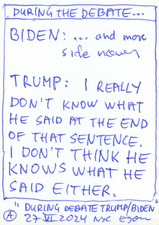 DURING THE DEBATE...
BIDEN: ... and more
side
TRUMP: I REALLY
DON'T KNOW WHAT
HE SAID AT THE END
OF THAT SENTENCE.
I DON'T THINK HE
KNOWS WHAT HE
SAID EITHER.
"DURING DEBATE TRUMP/BIDEN
A 27 VI 2024 NYC